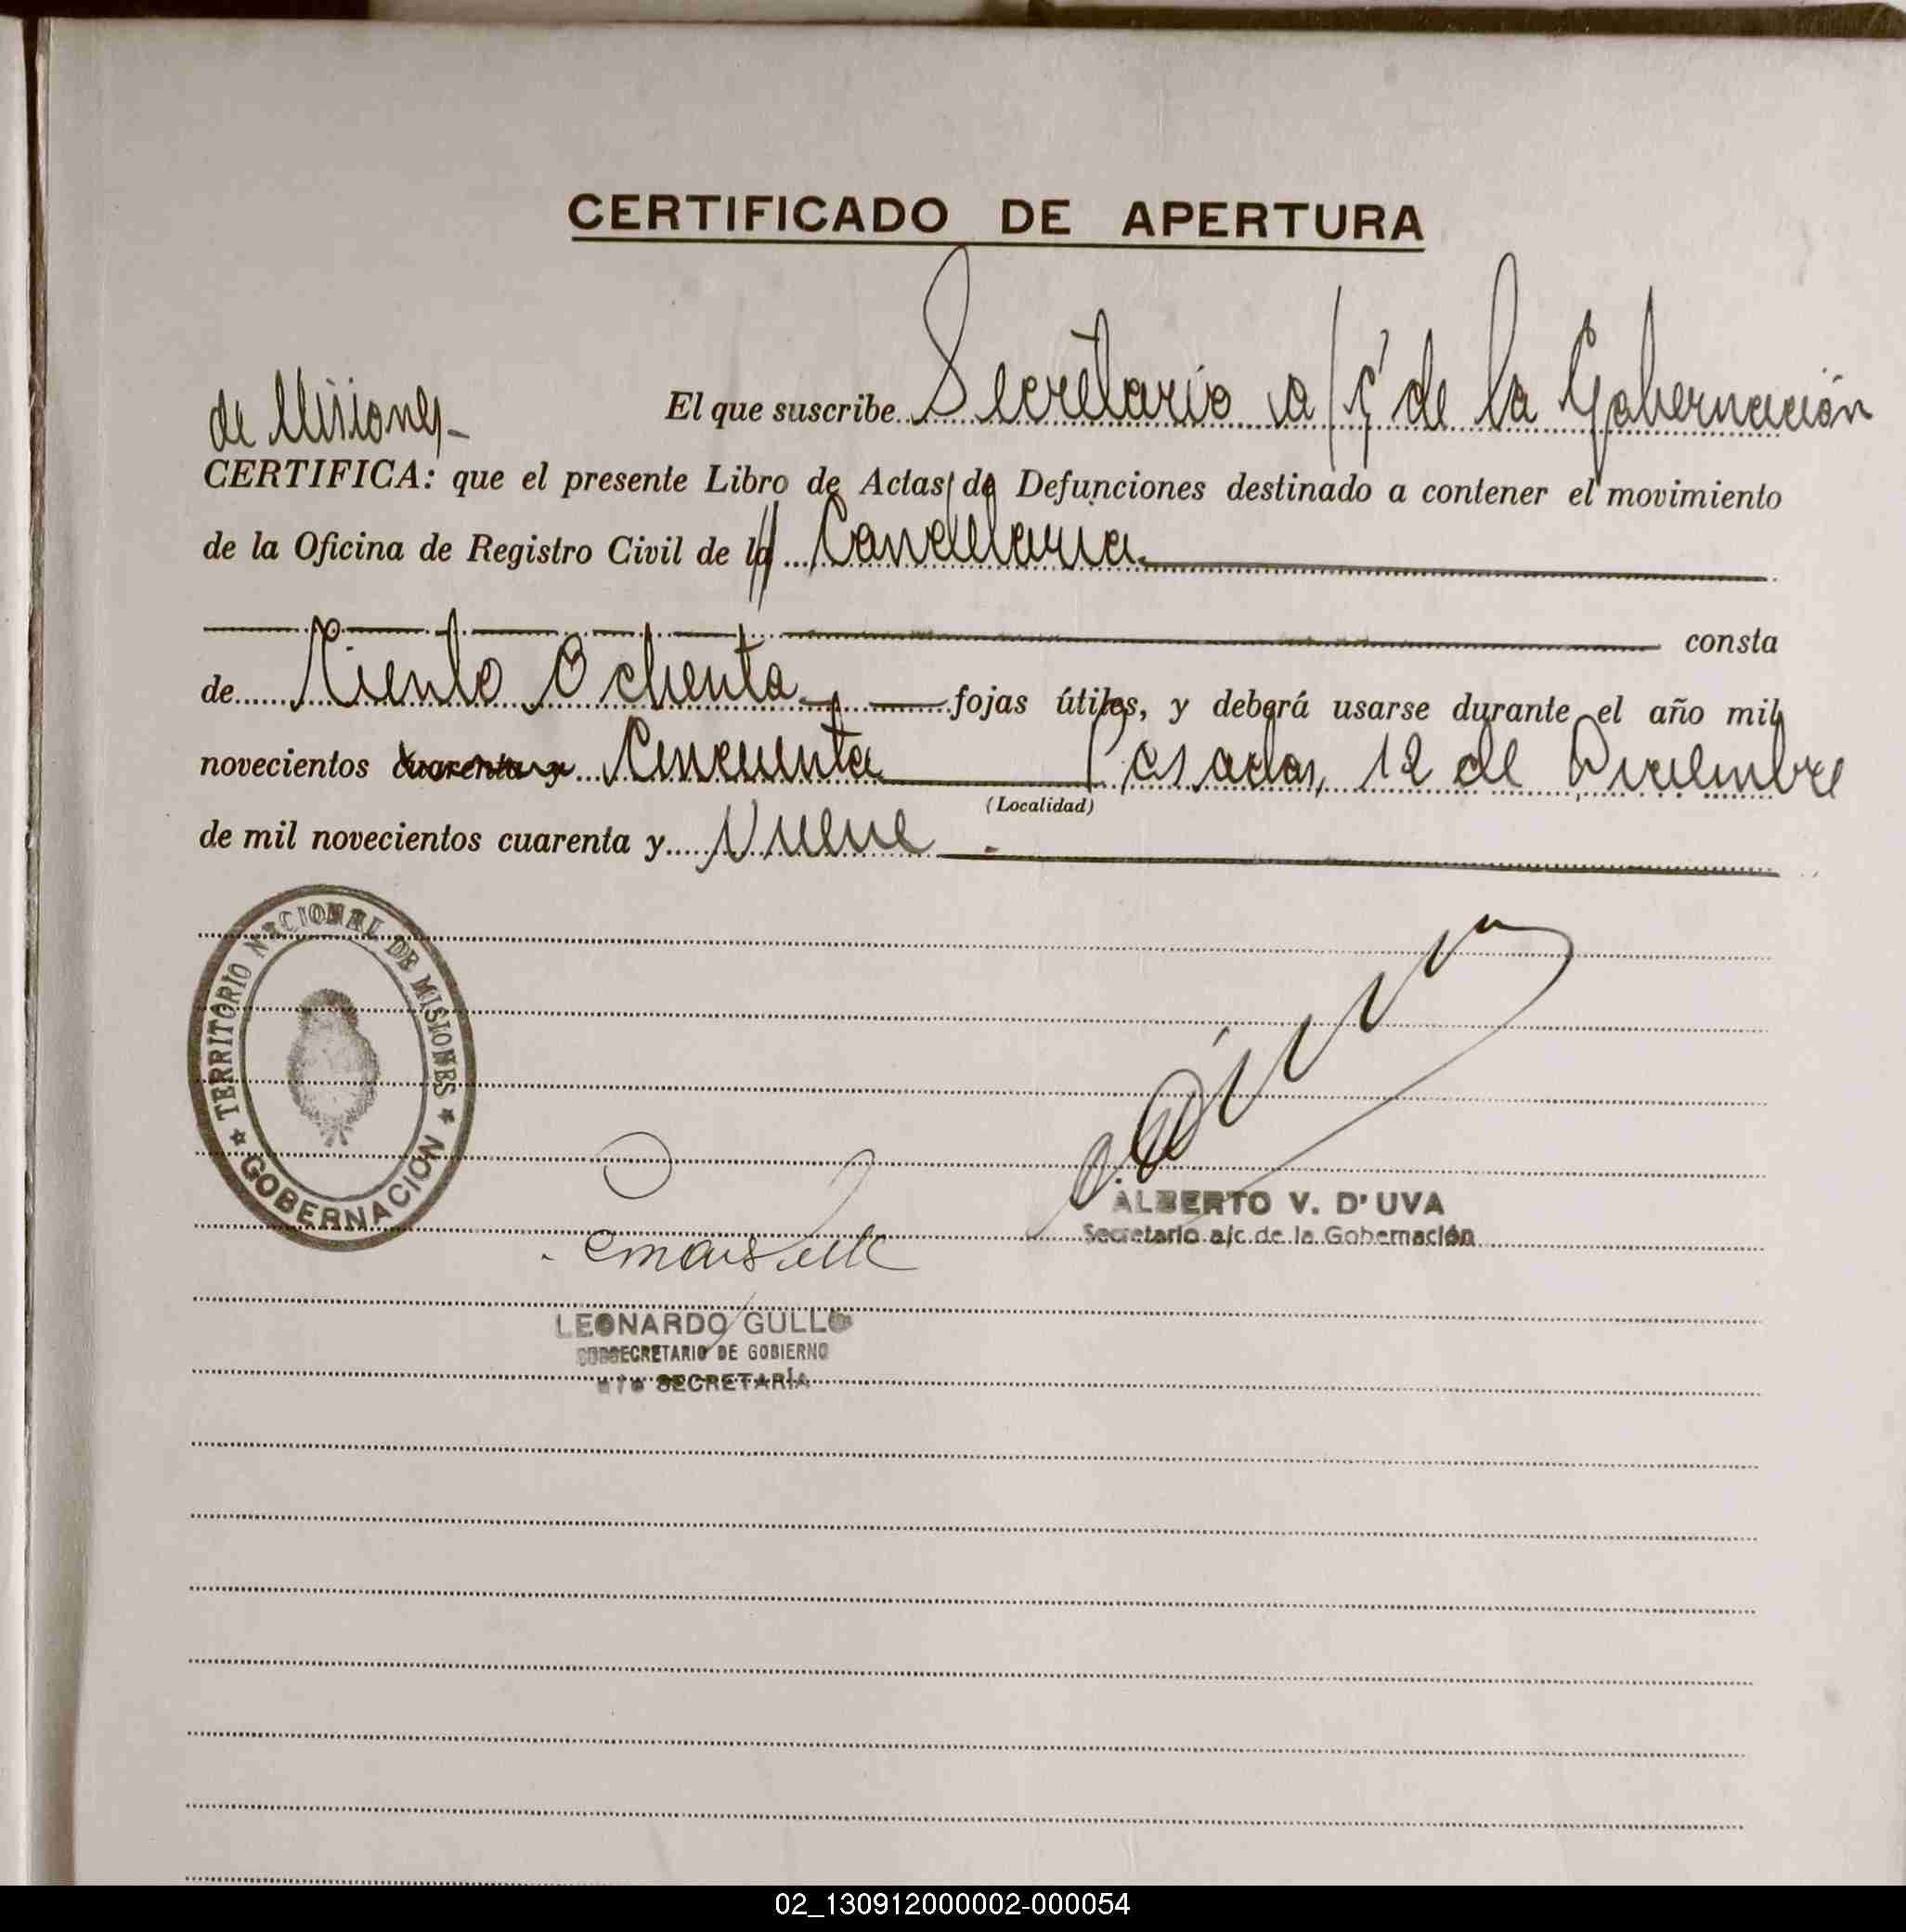 CERTIFICADO DE APERTURA
El que suscribe Secretario a/c de la Gobernación
de Misiones-
CERTIFICA: que el presente Libro de Actas de Defunciones destinado a contener el movimiento
de la Oficina de Registro Civil de la Candelaria
consta
de Ciento Ochenta fojas útiles, y deberá usarse durante el año mil
novecientos cuarenta y Cincuenta Posadas, 12 de Diciembre
(Localidad)
de mil novecientos cuarenta y Nueve
TERRITORIO NACIONAL DE MISIONES
GOBERNACION
ALBERTO V. D'UVA
Secretario a/c de la Gobernación
LEONARDO GULLO
SUBSECRETARIO DE GOBIERNO
SECRETARÍA
02_130912000002-000054